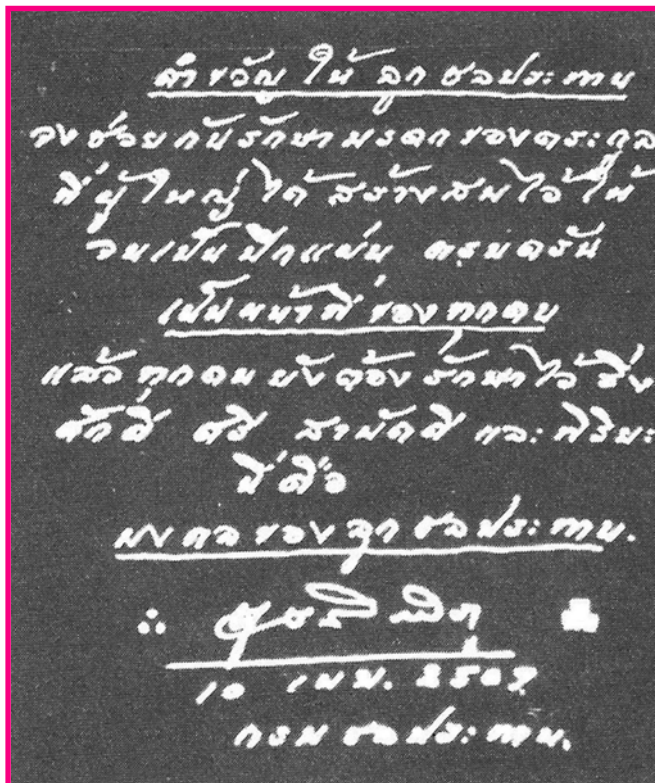 คำขวัญ ให้ ลูก ชลประทาน
จงช่วยกันรักษามรดกของตระกูล
ที่ผู้ใหญ่ได้สร้างสมไว้ให้
จนเป็นปึกแผ่น ครบครัน
เป็นหน้าที่ของทุกคน
แล้วทุกคนยังต้องรักษาไว้ซึ่ง
ศักดิ์ ศรี สามัคคี และ พิริยะ
นี่คือ
มงคลของลูกชลประทาน.
10 เมษ. 2507
กรมชลประทาน.